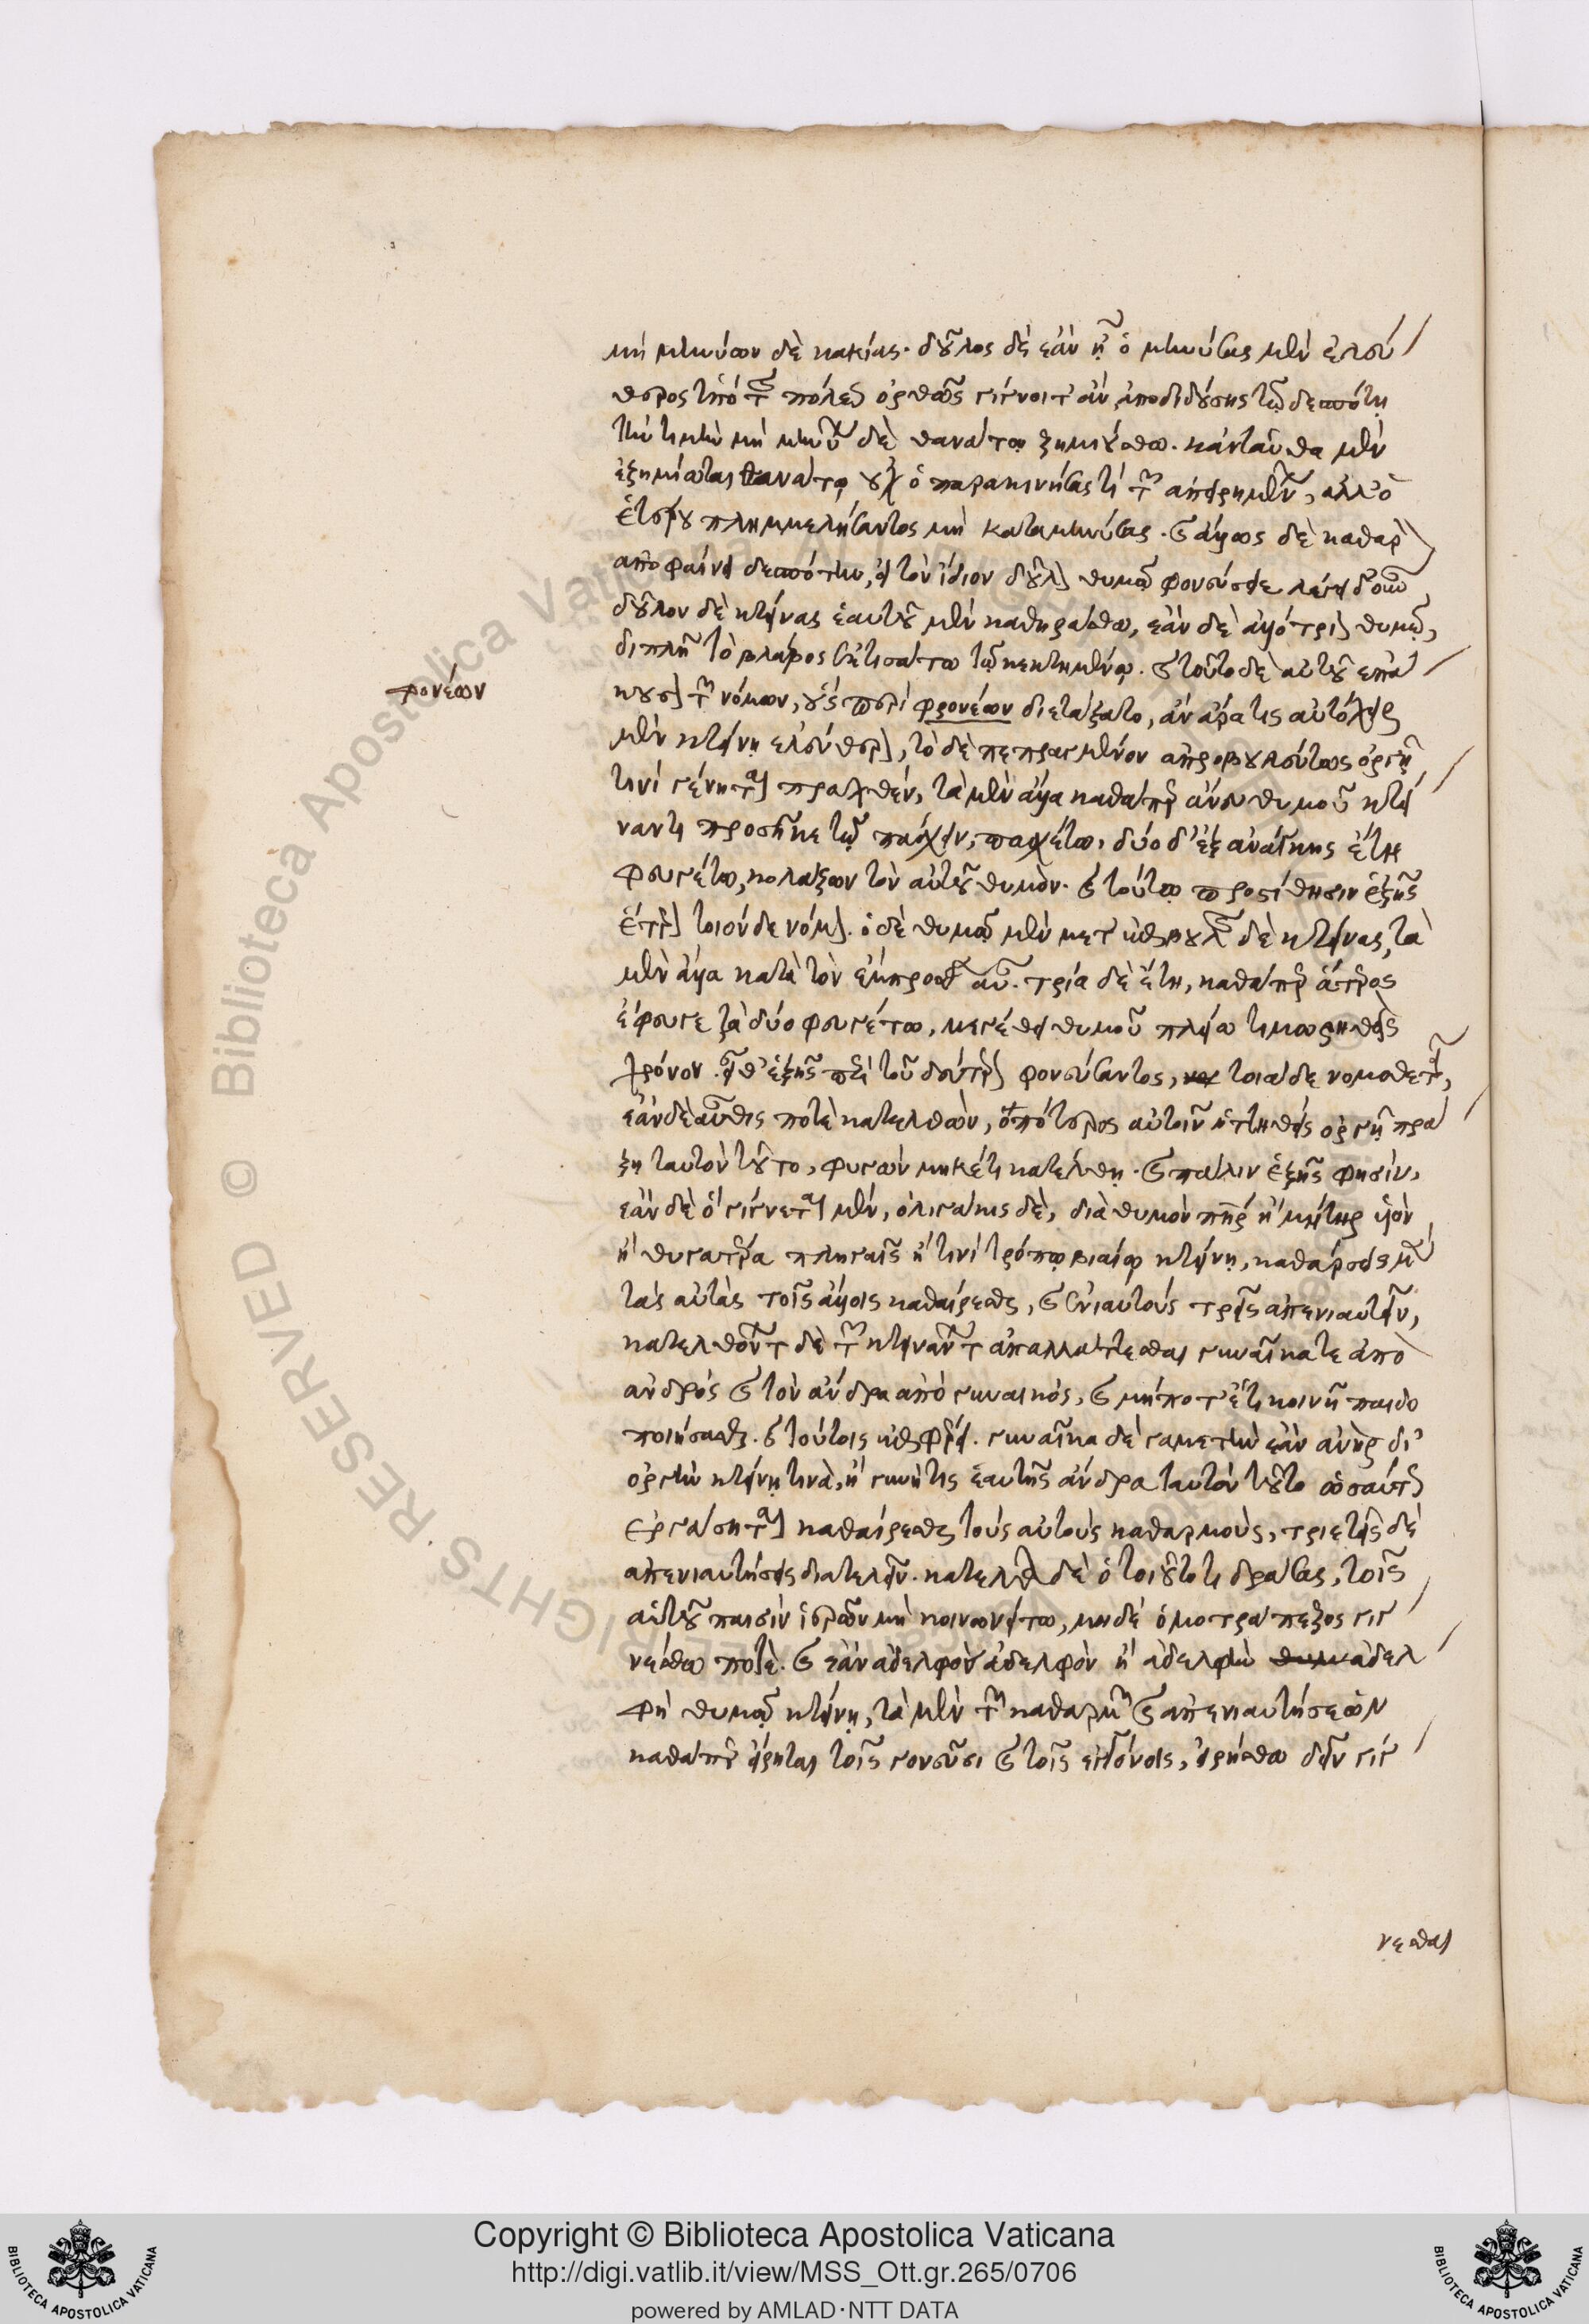 μὴ μηνύων δὲ κακίας. δοῦλος δὲ ἐὰν ᾖ ὁ μηνύσας μὲν ἐλεύ
θερος ὑπὸ τῆς πόλεως ὀρθῶς γίγνοιτ' ἂν ἀποδιδούσης τῷ δεσπότῃ
τὴν τιμὴν μὴ μηνύων δὲ θανάτῳ ζημιούσθω. κἀνταῦθα μὲν
ἐζημίωται θανάτῳ οὐχ ὁ παρακινήσας τι τῶν ἀπειρημένων, ἀλλ' ὁ
ἑτέρου πλημμελήσαντος μὴ καταμηνύσας. καὶ ἄλλως δὲ καθαρὸν
ἀποφαίνει δεσπότην, εἰ τὸν ἴδιον δοῦλον θυμῷ φονεύσειε λέγει δ' οὕτω
δοῦλον δὲ κτείνας ἑαυτοῦ μὲν καθηράσθω, ἐὰν δὲ ἀλλότριον θυμῷ,
διπλῇ τὸ βλάβος ἐκτισάτω τῷ κεκτημένῳ. καὶ τοῦτο δὲ αὐτοῦ ἐπα
κουσον τῶν νόμων, οὓς περὶ φρονέων διετάξατο, ἂν ἄρα τις αὐτόχειρ
μὲν κτείνῃ ἐλεύθερον, τὸ δὲ πεπραγμένον ἀπροβουλεύτως ὀργῇ
τινὶ γένηται πραχθέν, τὰ μὲν ἄλλα καθάπερ ἄνευ θυμοῦ κτεί
ναντι προσῆκε τῷ πάσχειν, πασχέτω, δύο δ' ἐξ ἀνάγκης ἔτη
φευγέτω, κολάζων τὸν αὑτοῦ θυμόν. καὶ τούτῳ προστίθησιν ἑξῆς
ἕτερον τοιόνδε νόμον. ὁ δὲ θυμῷ μὲν μετ' ἐπιβουλῆς δὲ κτείνας, τὰ
μὲν ἄλλα κατὰ τὸν ἔμπροσθεν αὖ. τρία δὲ ἔτη, καθάπερ ἅτερος
ἔφευγε τὰ δύο φευγέτω, μεγέθει θυμοῦ πλείω τιμωρηθεὶς
χρόνον. εἶθ' ἑξῆς περὶ τοῦ δεύτερον φονεύσαντος, τοιάδε νομοθετεῖ,
ἐὰν δὲ αὖθις ποτὲ κατελθὼν, ὁπότερος αὐτοῖν ἡττηθεὶς ὀργῇ πρά
ξῃ ταυτὸν τοῦτο, φυγὼν μηκέτι κατέλθῃ. καὶ πάλιν ἑξῆς φησὶν,
ἐὰν δὲ ὃ γίγνεται μὲν, ὀλιγάκις δὲ, διὰ θυμὸν πατὴρ ἢ μήτηρ υἱὸν
ἢ θυγατέρα πληγαῖς ἤ τινι τρόπῳ βιαίῳ κτείνῃ, καθάρσεις μὲν
τὰς αὐτὰς τοῖς ἄλλοις καθαίρεσθαι, καὶ ἐνιαυτοὺς τρεῖς ἀπενιαυτεῖν,
κατελθόντων δὲ τῶν κτεινάντων ἀπαλλάττεσθαι γυναῖκά τε ἀπὸ
ἀνδρὸς καὶ τὸν ἄνδρα ἀπὸ γυναικὸς, καὶ μήποτ' ἔτι κοινῇ παιδο
ποιήσασθαι. καὶ τούτοις ἐπιφέρει. γυναῖκα δὲ γαμετὴν ἐὰν ἀνὴρ δι'
ὀργὴν κτείνῃ τινὰ, ἢ γυνή τις ἑαυτῆς ἄνδρα ταυτὸν τοῦτο ὡσαύτως
ἐργάσηται καθαίρεσθαι τοὺς αὐτοὺς καθαρμοὺς, τριετεῖς δὲ
ἀπενιαυτήσεις διατελεῖν. κατελθὼν δὲ ὁ τοιοῦτό τι δράσας, τοῖς
αὑτοῦ παισὶν ἱερῶν μὴ κοινωνείτω, μηδὲ ὁμοτράπεζος γιγ
νέσθω ποτὲ. καὶ ἐὰν ἀδελφὸν ἀδελφὸν ἢ ἀδελφὴν ἀδελ
φὴ θυμῷ κτείνῃ, τὰ μὲν τῶν καθαρμῶν καὶ ἀπενιαυτήσεων
καθάπερ εἴρηται τοῖς γονεῦσι καὶ τοῖς ἐκγόνοις, εἰρήσθω δεῖν γίγ
φονέων
νεσθαι